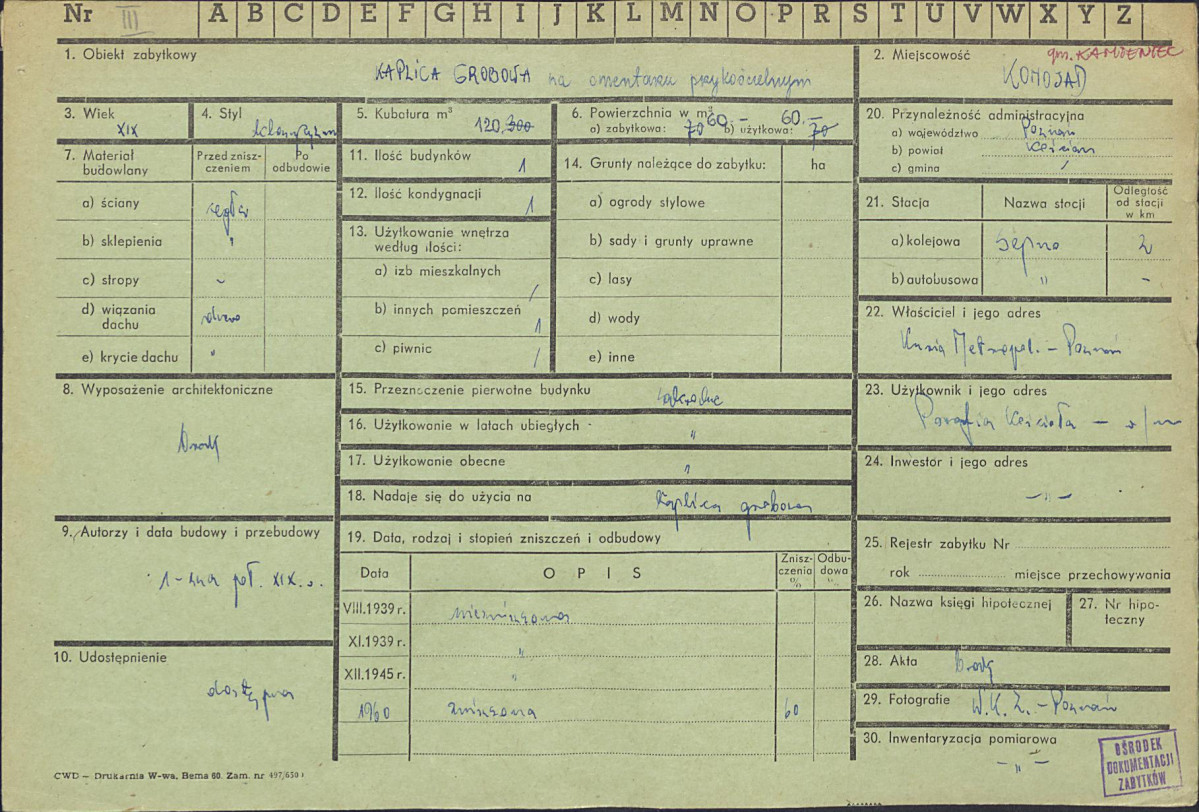 Nr III A B C D E F G H I J K L M N O P R S T U V W X Y Z
1. Obiekt zabytkowy
KAPLICA GROBOWA na cmentarzu przykościelnym
2. Miejscowość
gm. KAMIENIEC
KONOJAD
3. Wiek
XIX
4. Styl
5. Kubatura m³
120. 300
6. Powierzchnia w m²
a) zabytkowa: 70 60.–
b) użytkowa: 70 60.–
20. Przynależność administracyjna
a) województwo Poznań
b) powiat Kościan
c) gmina /
7. Materiał budowlany
Przed zniszczeniem
Po odbudowie
a) ściany cegła
b) sklepienia "
c) stropy -
d) wiązania dachu drewno
e) krycie dachu "
11. Ilość budynków 1
12. Ilość kondygnacji 1
13. Użytkowanie wnętrza według ilości:
a) izb mieszkalnych /
b) innych pomieszczeń 1
c) piwnic /
14. Grunty należące do zabytku: ha
a) ogrody stylowe
b) sady i grunty uprawne
c) lasy
d) wody
e) inne
21. Stacja
Nazwa stacji
Odległość od stacji w km
a) kolejowa Sepno 2
b) autobusowa " -
22. Właściciel i jego adres
Kuria Metropol. - Poznań
8. Wyposażenie architektoniczne
brak
15. Przeznaczenie pierwotne budynku sakralne
16. Użytkowanie w latach ubiegłych - "
17. Użytkowanie obecne "
18. Nadaje się do użycia na kaplica grobowa
23. Użytkownik i jego adres
Parafia Kościoła - j/w
24. Inwestor i jego adres
-"-
9. Autorzy i data budowy i przebudowy
1-sza poł. XIX w.
19. Data, rodzaj i stopień zniszczeń i odbudowy
Data
OPIS
Zniszczenia %
Odbudowa %
VIII.1939 r. niezniszczona
XI.1939 r. "
XII.1945 r. "
1960 zniszczona 60
25. Rejestr zabytku Nr
rok miejsce przechowywania
26. Nazwa księgi hipotecznej
27. Nr hipoteczny
10. Udostępnienie
dostępna
28. Akta brak
29. Fotografie W.K.Z. - Poznań
30. Inwentaryzacja pomiarowa
-"-
OŚRODEK
DOKUMENTACJI
ZABYTKÓW
CWD – Drukarnia W-wa, Bema 60. Zam. nr 497/650